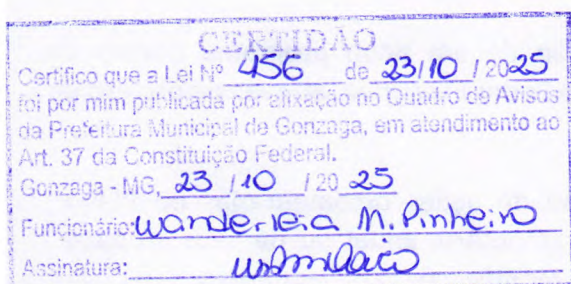 CERTIDÃO
Certifico que a Lei Nº 456 de 23/10 / 2025
foi por mim publicada por afixação no Quadro de Avisos
da Prefeitura Municipal de Gonzaga, em atendimento ao
Art. 37 da Constituição Federal.
Gonzaga - MG, 23 / 10 / 20 25
Funcionário: Wanderleia M. Pinheiro
Assinatura: